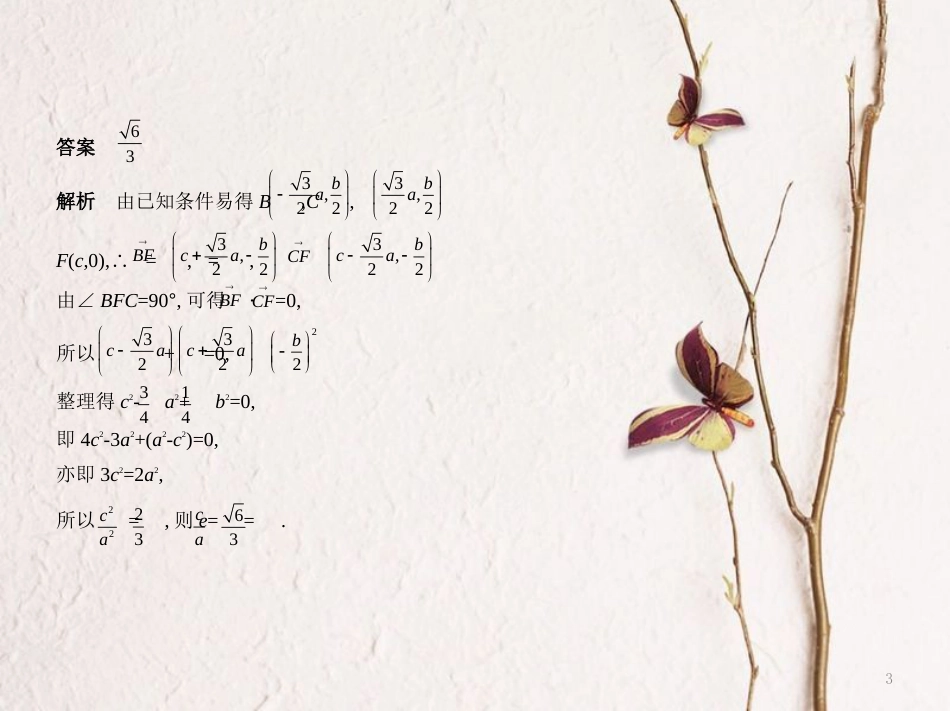 答案 √6/3
解析 由已知条件易得 B(-√3/2 a, b/2), C(√3/2 a, b/2),
F(c,0),∴ BF→=(c+√3/2 a, -b/2), CF→=(c-√3/2 a, -b/2),
由∠ BFC=90°, 可得 BF→·CF→=0,
所以(c-√3/2 a)(c+√3/2 a)+(-b/2)²=0,
整理得 c²-3/4 a²+1/4 b²=0,
即 4c²-3a²+(a²-c²)=0,
亦即 3c²=2a²,
所以 c²/a²=2/3, 则 e=c/a=√6/3.
3